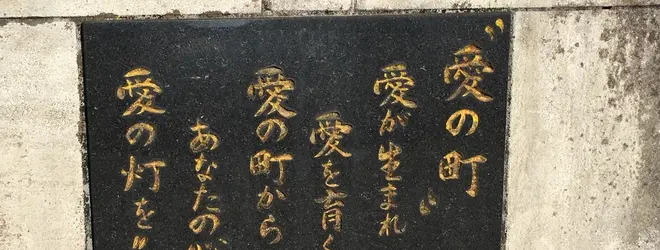 ”愛の町”
愛が生まれ
愛を育く
愛の町から
あなたの
愛の灯を”